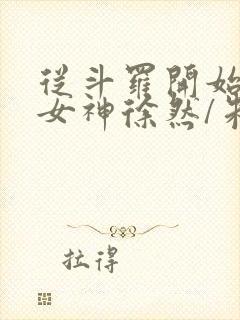 從斗羅開始
女神徐然/朱
拉得